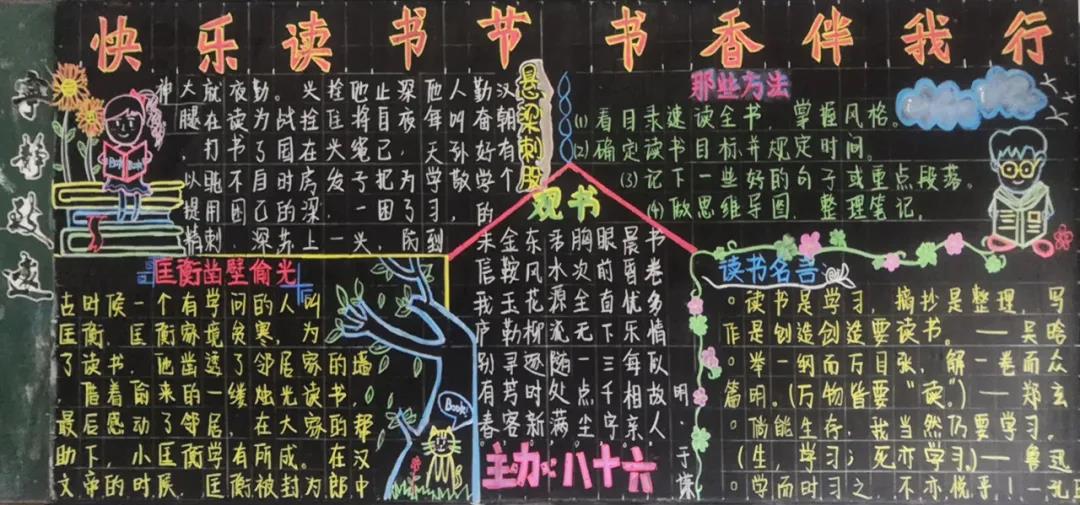 快乐读书节 书香伴我行
宁静致远
悬梁刺股
汉朝有个
勤奋好学的
人叫孙敬，
他每天学习到
深夜，为了防
止自己困，
他将绳子一头
拴住头发，一
头拴在房梁上
。战国时的苏
勤为了自己深
夜读书不困，
就在打瞌用刺
大腿，以提精
神
那些方法
(1)看目录速读全书，掌握风格。
(2)确定读书目标并规定时间。
(3)记下一些好的句子或重点段落。
(4)做思维导图，整理笔记。
匡衡凿壁偷光
古时候一个有学问的人叫
匡衡，匡衡家境贫寒，为
了读书，他凿透了邻居家的墙
，借着偷来的一缕烛光读书，
最后感动了邻居，在大家的帮
助下，小匡衡学有所成。在汉
文帝的时候，匡衡被封为郎中
Book
Book
Book!
观书
书卷多情似故人
晨昏优乐每相亲
眼前直下三千字
胸次全无一点尘
活水源流随处满
东风花柳逐时新
金鞍玉勒寻芳客
未信我庐别有春
明·于谦
主办:八十六
读书名言
读书是学习，摘抄是整理，写
作是创造创造要读书。——吴晗
举一纲而万目张，解一卷而众
篇明。(万物皆要“读”。)——郑玄
倘能生存，我当然仍要学习。
(生，学习；死亦学习。)——鲁迅
学而时习之，不亦悦乎！—孔丘